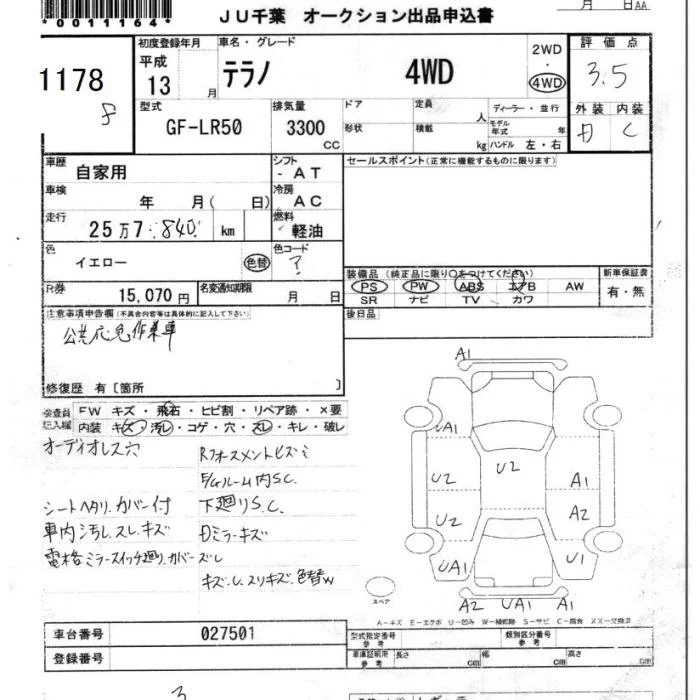 *0011164*
月 日 AA
JU千葉 オークション出品申込書
1178
8
初度登録年月
平成 13 月
車名・グレード
テラノ 4WD
2WD
・
4WD
評価点
3.5
型式
GF-LR50
排気量
3300 CC
ドア
形状
定員 人
積載 kg
ディーラー・並行
モデル年式 年
ハンドル 左・右
外装 内装
D C
車歴
自家用
シフト
- AT
セールスポイント(正常に機能するものに限ります)
車検
年 月( 日)
冷房
AC
走行
25万7 840 km
燃料
軽油
色
イエロー
色替
色コード
?
装備品 (純正品に限り○をつけてください)
PS PW ABS エアB AW
SR ナビ TV カワ
新車保証書
有・無
R券
15,070円
名変通知期限
月 日
後日品
注意事項申告欄(不具合内容等は具体的に記入して下さい)
公共応急作業車
修復歴 有〔箇所 〕
検査員記入欄
FW キズ・飛石・ヒビ割・リペア跡・×要
内装 キズ・汚レ・コゲ・穴・スレ・キレ・破レ
オーディオレス穴
シートヘタリ.カバー付
車内汚レ.スレ.キズ
電格ミラースイッチ廻リ.カバーズレ
下廻リS.C.
Dミラーキズ
キズ.U.スリキズ.色替W
A1
UA1
U2
U2
U2
A1
A2
UA1
U1
A2 UA1 A1
スペア
A-キズ E-エクボ U-凹み W-補修跡 S-サビ C-腐食 XX-交換済
車台番号
027501
型式指定番号
参考
類別区分番号
参考
登録番号
車庫証明用
参考
長さ cm
幅 cm
高さ cm
3